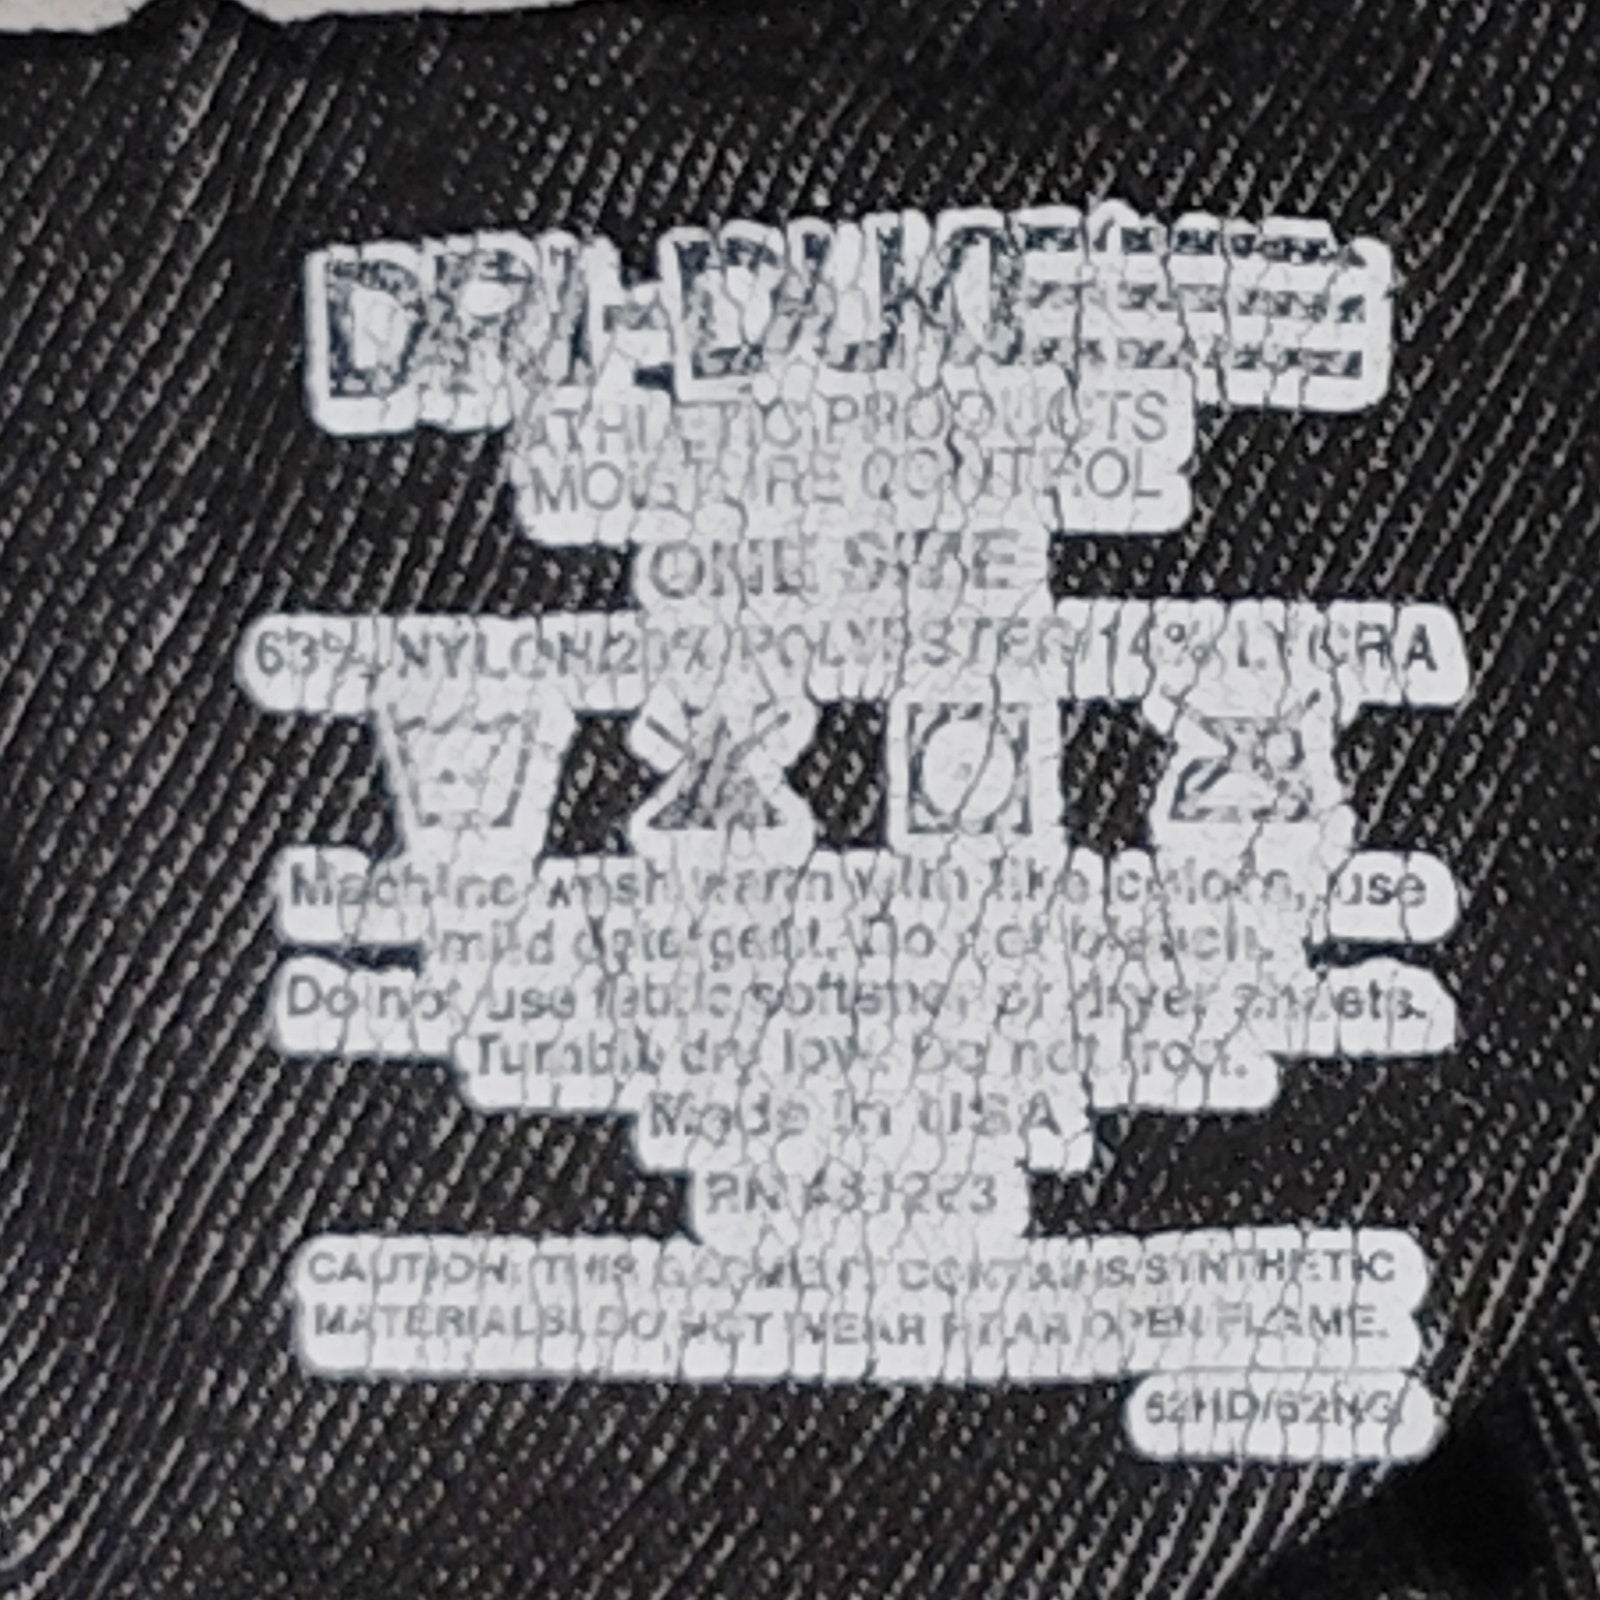 DRI-DUKE
ATHLETIC PRODUCTS
MOISTURE CONTROL
ONE SIZE
63% NYLON/23% POLYESTER/14% LYCRA
Machine wash warm with like colors, use
mild detergent. Do not bleach.
Do not use fabric softener or dryer sheets.
Tumble dry low. Do not iron.
Made in USA
RN
CAUTION: THIS GARMENT CONTAINS SYNTHETIC
MATERIALS. DO NOT WEAR NEAR OPEN FLAME.